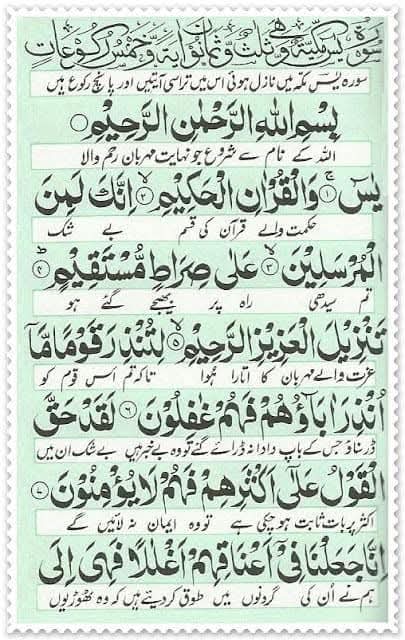 سورة يس مكية وهي ثلث وثمانون اية وخمس ركوعات
سورہ یٰس مکہ میں نازل ہوئی اس میں تراسی آیتیں اور پانچ رکوع ہیں
بِسْمِ اللهِ الرَّحْمٰنِ الرَّحِيْمِ
اللہ کے نام سے شروع جو نہایت مہربان رحم والا
يٰسٓ ۱ وَالْقُرْاٰنِ الْحَكِيْمِ ۲ اِنَّكَ لَمِنَ
حکمت والے قرآن کی قسم بے شک
الْمُرْسَلِيْنَ ۳ عَلٰى صِرَاطٍ مُّسْتَقِيْمٍ ۴
تم سیدھی راہ پر بھیجے گئے ہو
تَنْزِيْلَ الْعَزِيْزِ الرَّحِيْمِ ۵ لِتُنْذِرَ قَوْمًا مَّآ
عزت والے مہربان کا اتارا ہوا تاکہ تم اس قوم کو
اُنْذِرَ اٰبَآؤُهُمْ فَهُمْ غٰفِلُوْنَ ۶ لَقَدْ حَقَّ
ڈر سناؤ جس کے باپ دادا نہ ڈرائے گئے تو وہ بے خبر ہیں بے شک ان میں
الْقَوْلُ عَلٰٓى اَكْثَرِهِمْ فَهُمْ لَا يُؤْمِنُوْنَ ۷
اکثر پر بات ثابت ہو چکی ہے تو وہ ایمان نہ لائیں گے
اِنَّا جَعَلْنَا فِيْٓ اَعْنَاقِهِمْ اَغْلٰلًا فَهِيَ اِلَى
ہم نے اُن کی گردنوں میں طوق کر دیئے ہیں کہ وہ ٹھوڑیوں